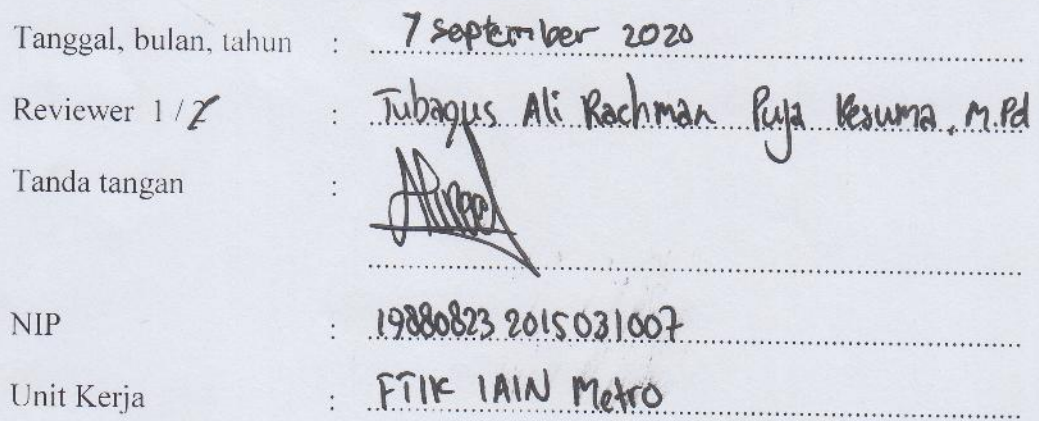 Tanggal, bulan, tahun : 7 September 2020
Reviewer 1 / 2 : Tubagus Ali Rachman Puja Kesuma, M.Pd
Tanda tangan :
NIP : 19880823 2015031007
Unit Kerja : FTIK IAIN Metro